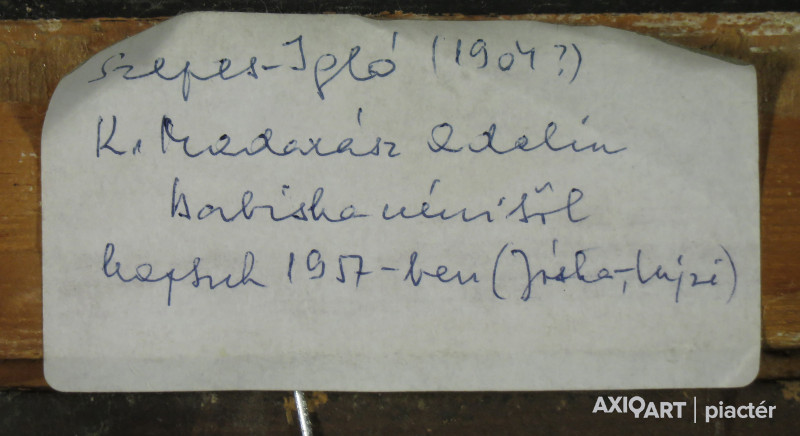 Szepes-Igló (1904?)
K. Madarász Adelin
Borbiska nénitől
kaptuk 1957-ben (Jóska, Lujzi)
AXIOART | piactér